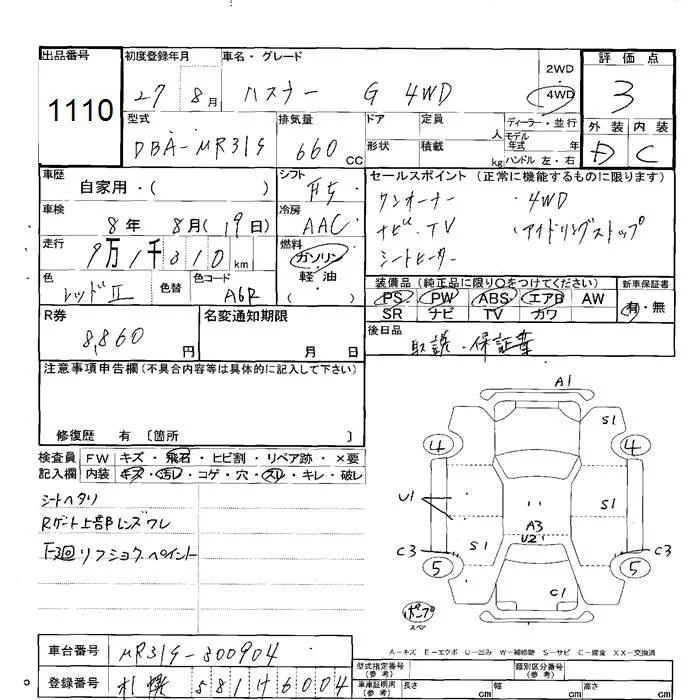 出品番号 初度登録年月 車名・グレード 2WD 評価点
1110 27 8月 ハスラー G 4WD 4WD 3
型式 排気量 ドア 定員 人 ディーラー・並行 外装 内装
DBA-MR31S 660CC 形状 積載 kg モデル年式 年 ハンドル 左・右 D C
車歴 自家用・( ) シフト セールスポイント (正常に機能するものに限ります)
車検 8年 8月(19日) 冷房 AAC ワンオーナー ・4WD
走行 9万1千310km 燃料 ガソリン・軽油 ナビ・TV ・アイドリングストップ
シートヒーター
色 レッドⅡ 色替 色コード A6R
装備品 (純正品に限り〇をつけてください) 新車保証書
PS PW ABS エアB AW 有・無
SR ナビ TV カワ
R券 8,860円 名変通知期限 月 日
後日品 取説・保証書
注意事項申告欄(不具合内容等は具体的に記入して下さい)
修復歴 有 〔箇所 〕
検査員 FW キズ・飛石・ヒビ割・リペア跡・×要
記入欄 内装 キズ・汚レ・コゲ・穴・スレ・キレ・破レ
シートヘタリ
Rゲート上部レンズワレ
リフショウ ペイント
A1
4 S1 4
U1 S1
A3
U2
C3 S1 C3
5 5
C1
ポンプ
スペア
A-キズ E-エクボ U-凹み W-補修跡 S-サビ C-腐食 XX-交換済
車台番号 MR31S-300904
型式指定番号(参考) 類別区分番号(参考)
登録番号 札幌 581 け 6004
車庫証明用(参考) 長さ cm 幅 cm 高さ cm